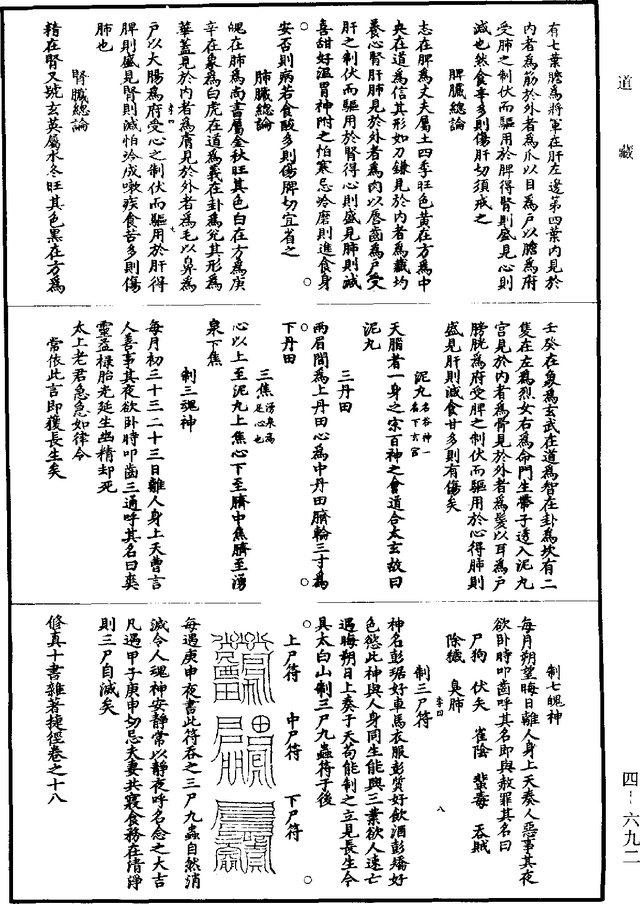 道藏
有七葉膽為將軍在肝左邊第四葉內見於
內者為筋於外者為爪以目為戶以膽為府
受肺之制伏而驅用於脾得腎則盛見心則
減也然食辛多則傷肝切須戒之
脾臟總論
志在脾為丈夫屬土四季旺色黃在方為中
央在道為信其形如刀鎌見於內者為藏均
養心腎肝肺見於外者為肉以唇齒為戶受
肝之制伏而驅用於腎得心則盛見肺則減
喜甜好溫胃神附之怕寒忌冷磨則進食身
安否則病若食酸多則傷脾切宜省之
肺臟總論
魄在肺為尚書屬金秋旺其色白在方為庚
辛在象為白虎在道為義在卦為兌其形為
華蓋見於內者為膚見於外者為毛以鼻為
戶以大腸為府受心之制伏而驅用於肝得
脾則盛見腎則減怕冷成嗽疾食苦多則傷
肺也
腎臟總論
精在腎又號玄英屬水冬旺其色黑在方為
壬癸在象為玄武在道為智在卦為坎有二
隻在左為烈女右為命門生帶子透入泥丸
宮見於內者為骨見於外者為髮以耳為戶
膀胱為府受脾之制伏而驅用於心得肺則
盛見肝則減食甘多則有傷矣
泥丸
天腦者一身之宗百神之會道合太玄故曰
泥丸
三丹田
兩眉間為上丹田心為中丹田臍輪三寸為
下丹田
三焦 湧泉為足心也
心以上至泥丸上焦心下至臍中焦臍至湧
泉下焦
制三魂神
每月初三十三二十三日離人身上天曹言
人善事其夜欲臥時叩齒三通呼其名曰爽
靈益祿胎光延生幽精却死
太上老君急急如律令
常依此言即獲長生矣
制七魄神
每月朔望晦日離人身上天奏人惡事其夜
欲臥時叩齒呼其名即與赦罪其名曰
尸狗 伏矢 雀陰 蜚毒 吞賊
除穢 臭肺
制三尸符
神名彭琚好車馬衣服彭質好飲酒彭矯好
色慾此神與人身同生能與三業欲人速亡
遇晦朔日上奏子天苟能制之立見長生今
具太白山制三尸九蟲符子後
上尸符 中尸符 下尸符
每遇庚申夜書此符吞之三尸九蟲自然消
滅令人魂神安靜常以靜夜呼名念之大吉
凡遇甲子庚申切忌夫妻共寢食務在清淨
則三尸自滅矣
修真十書雜著捷徑卷之十八
四－六九二